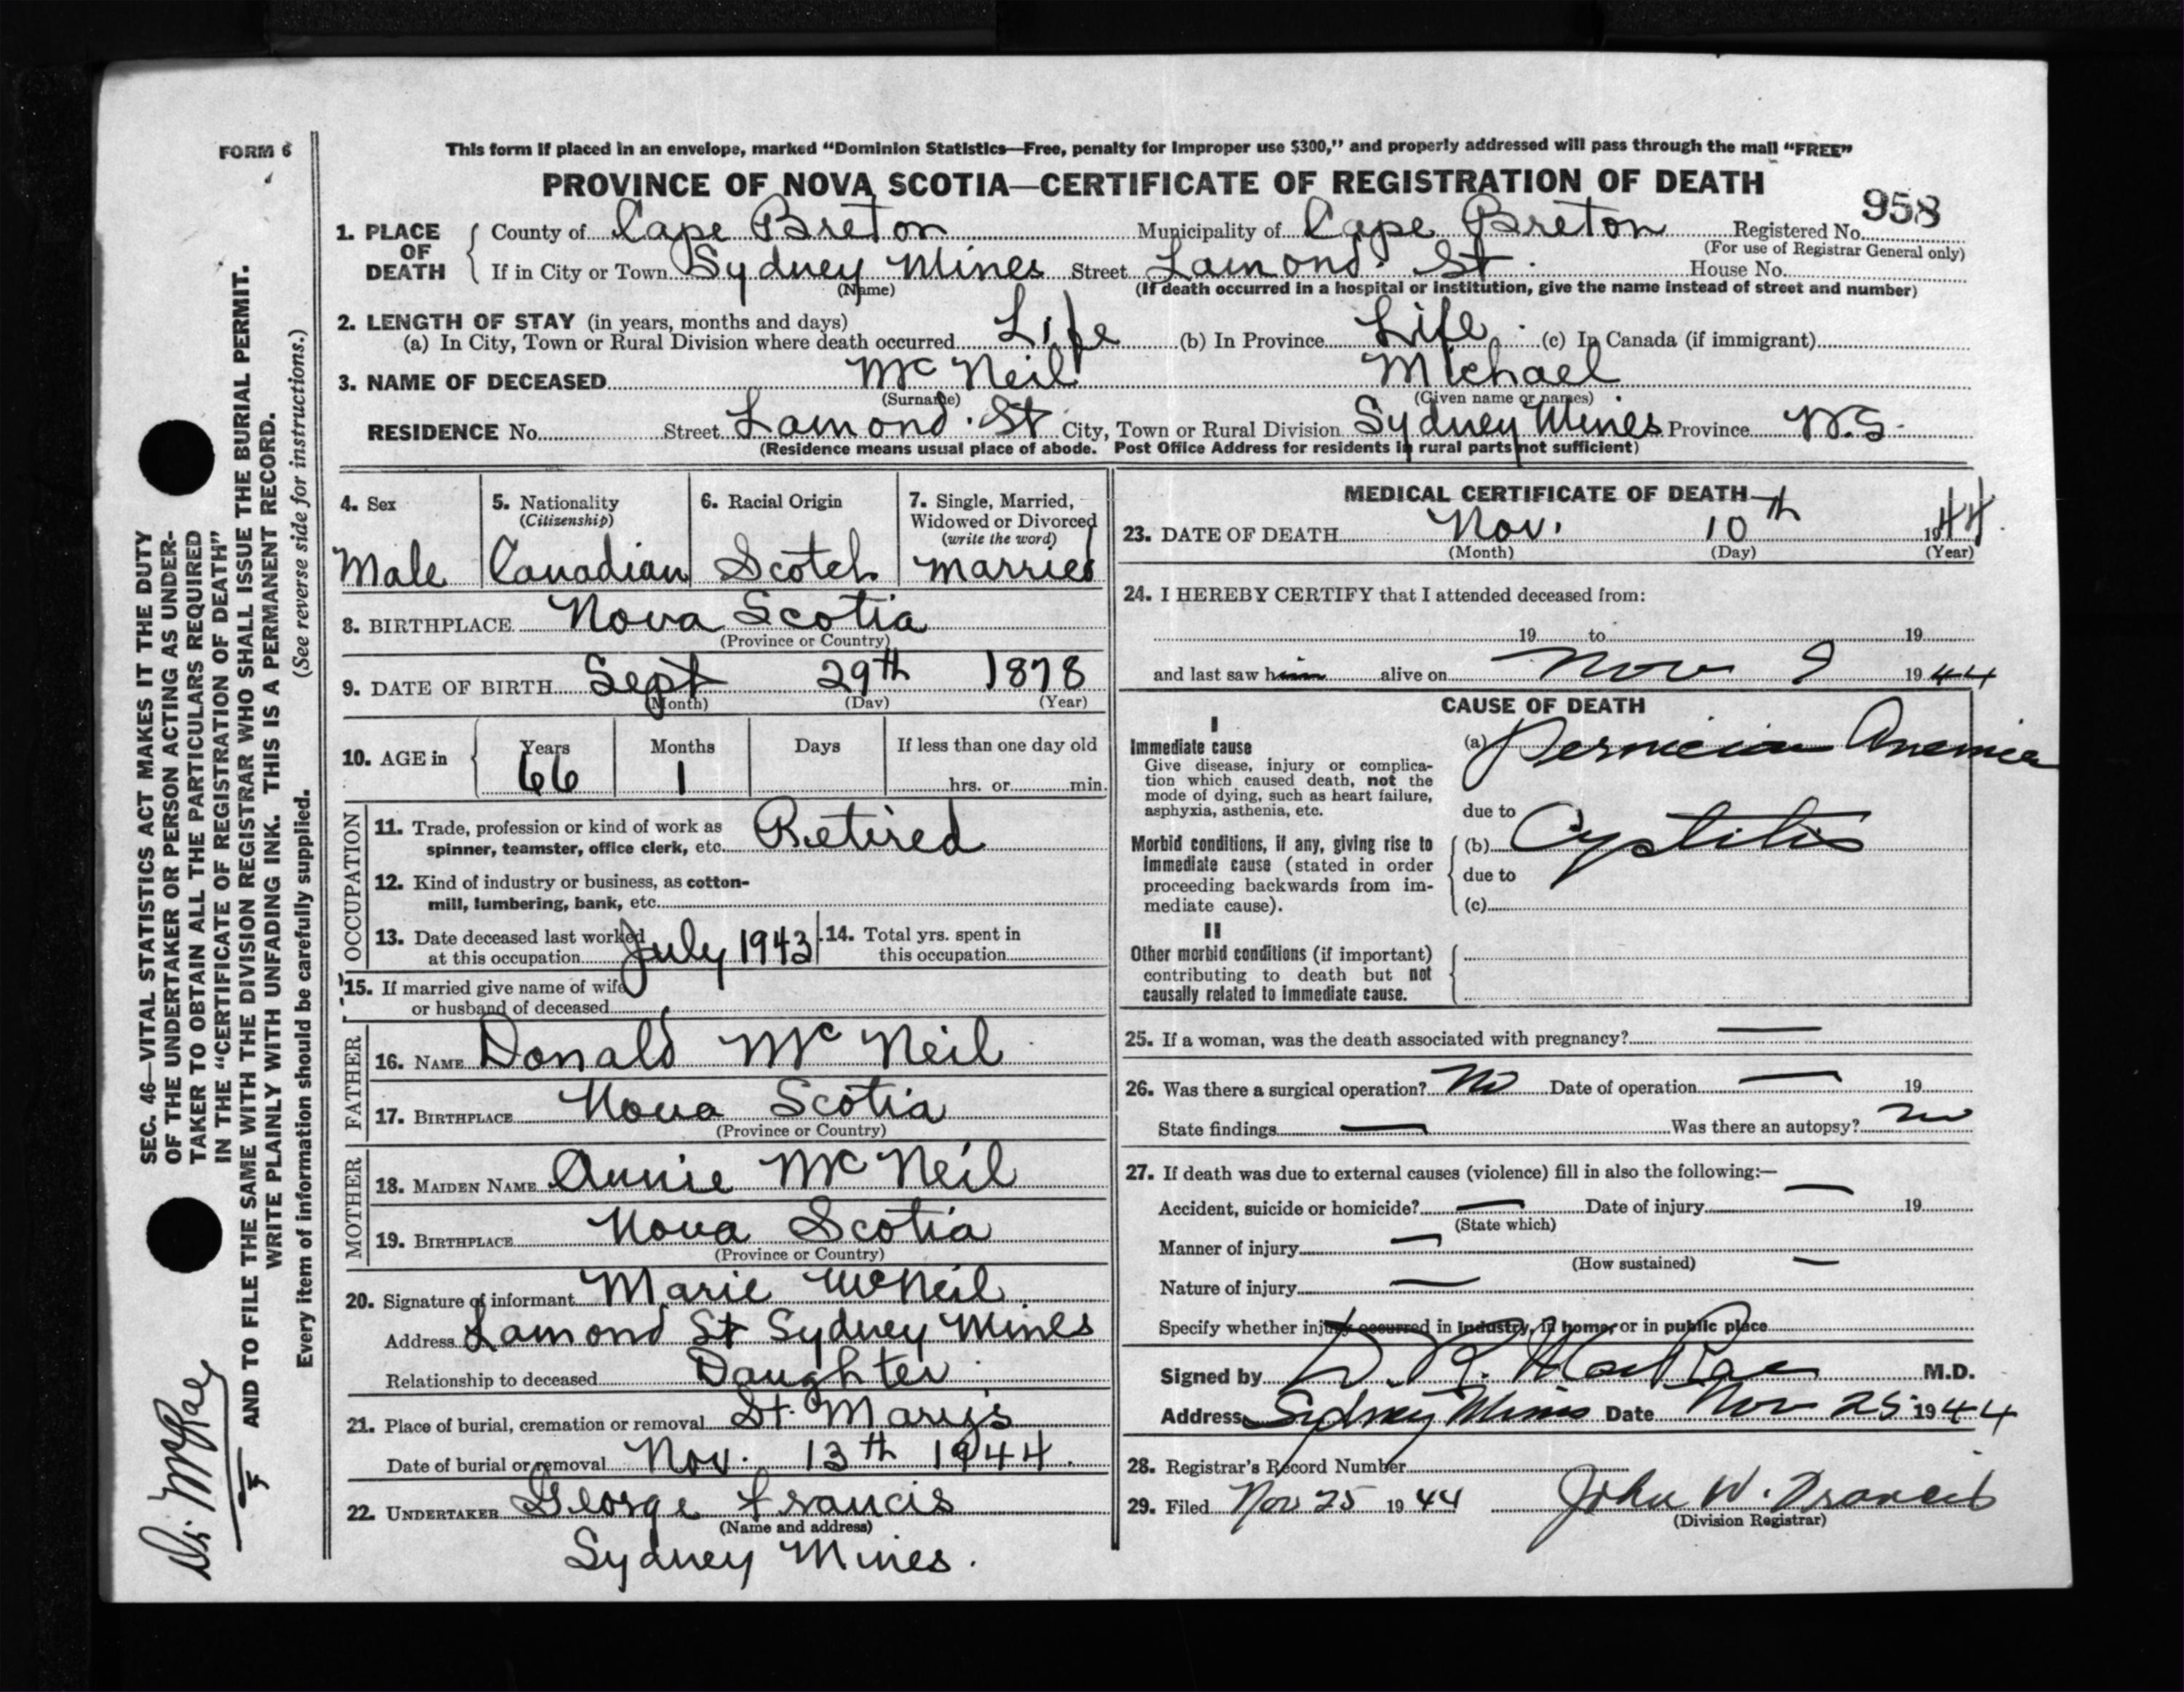 FORM 6
This form if placed in an envelope, marked “Dominion Statistics—Free, penalty for improper use $300,” and properly addressed will pass through the mail “FREE”
PROVINCE OF NOVA SCOTIA—CERTIFICATE OF REGISTRATION OF DEATH
958
1. PLACE OF DEATH { County of Cape Breton Municipality of Cape Breton Registered No.
(For use of Registrar General only)
If in City or Town Sydney Mines Street Lamond St. House No.
(Name) (If death occurred in a hospital or institution, give the name instead of street and number)
2. LENGTH OF STAY (in years, months and days)
(a) In City, Town or Rural Division where death occurred Life (b) In Province Life (c) In Canada (if immigrant)
3. NAME OF DECEASED McNeil Michael
(Surname) (Given name or names)
RESIDENCE No. Street Lamond St City, Town or Rural Division Sydney Mines Province N.S.
(Residence means usual place of abode. Post Office Address for residents in rural parts not sufficient)
4. Sex
Male
5. Nationality
(Citizenship)
Canadian
6. Racial Origin
Scotch
7. Single, Married,
Widowed or Divorced
(write the word)
married
8. BIRTHPLACE Nova Scotia
(Province or Country)
9. DATE OF BIRTH Sept 29th 1878
(Month) (Day) (Year)
10. AGE in { Years Months Days If less than one day old
66 1 hrs. or min.
OCCUPATION
11. Trade, profession or kind of work as
spinner, teamster, office clerk, etc. Retired
12. Kind of industry or business, as cotton-
mill, lumbering, bank, etc.
13. Date deceased last worked
at this occupation July 1943
14. Total yrs. spent in
this occupation
15. If married give name of wife
or husband of deceased
FATHER
16. NAME Donald McNeil
17. BIRTHPLACE Nova Scotia
(Province or Country)
MOTHER
18. MAIDEN NAME Annie McNeil
19. BIRTHPLACE Nova Scotia
(Province or Country)
20. Signature of informant Marie McNeil
Address Lamond St Sydney Mines
Relationship to deceased Daughter
21. Place of burial, cremation or removal St. Mary's
Date of burial or removal Nov. 13th 1944.
22. UNDERTAKER George Francis
(Name and address)
Sydney Mines.
MEDICAL CERTIFICATE OF DEATH
23. DATE OF DEATH Nov. 10th 1944
(Month) (Day) (Year)
24. I HEREBY CERTIFY that I attended deceased from:
19 to 19
and last saw him alive on Nov 9 1944
CAUSE OF DEATH
I
Immediate cause
Give disease, injury or complica-
tion which caused death, not the
mode of dying, such as heart failure,
asphyxia, asthenia, etc.
(a) Pernicious Anemia
due to
Morbid conditions, if any, giving rise to
immediate cause (stated in order
proceeding backwards from im-
mediate cause).
(b) Cystitis
due to
(c)
II
Other morbid conditions (if important)
contributing to death but not
causally related to immediate cause.
25. If a woman, was the death associated with pregnancy? —
26. Was there a surgical operation? No Date of operation — 19
State findings — Was there an autopsy? no
27. If death was due to external causes (violence) fill in also the following:—
Accident, suicide or homicide? — Date of injury — 19
(State which)
Manner of injury —
(How sustained) —
Nature of injury —
Specify whether injury occurred in industry, in home, or in public place
Signed by D. R. MacRae M.D.
Address Sydney Mines Date Nov 25 1944
28. Registrar's Record Number
29. Filed Nov 25 1944 John W. Francis
(Division Registrar)
SEC. 46—VITAL STATISTICS ACT MAKES IT THE DUTY
OF THE UNDERTAKER OR PERSON ACTING AS UNDER-
TAKER TO OBTAIN ALL THE PARTICULARS REQUIRED
IN THE “CERTIFICATE OF REGISTRATION OF DEATH”
AND TO FILE THE SAME WITH THE DIVISION REGISTRAR WHO SHALL ISSUE THE BURIAL PERMIT.
WRITE PLAINLY WITH UNFADING INK. THIS IS A PERMANENT RECORD.
Every item of information should be carefully supplied. (See reverse side for instructions.)
Dr. McRae